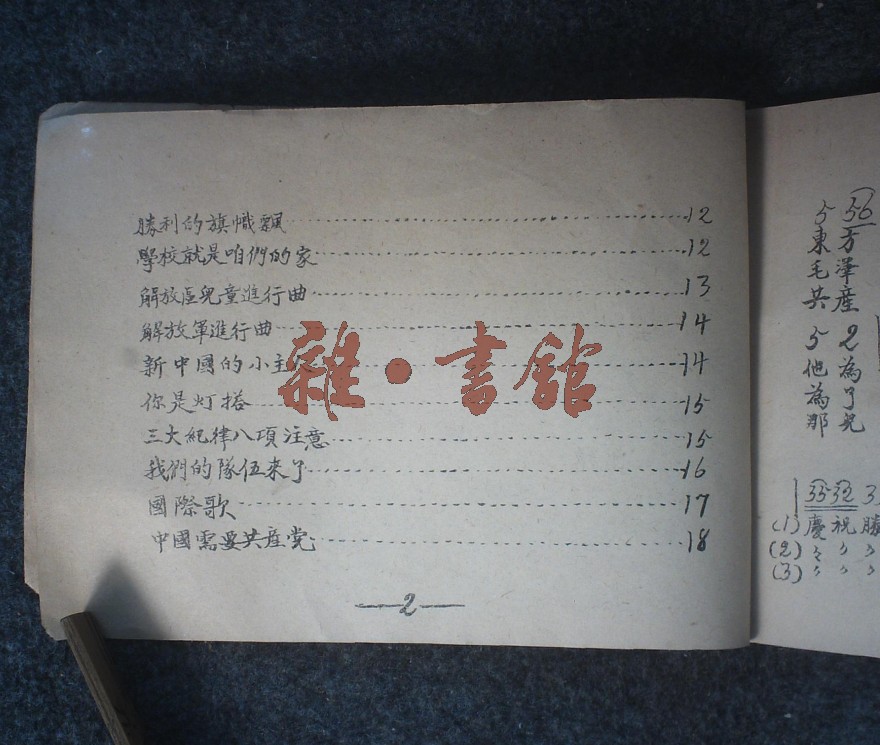 勝利的旗幟飄 12
學校就是咱們的家 12
解放區兒童進行曲 13
解放軍進行曲 14
新中國的小主人 14
你是灯塔 15
三大紀律八項注意 15
我們的隊伍來了 16
國際歌 17
中國需要共產党 18
2
雜·書館
5 56
東方
毛澤
共產
5 2
他為
為了
那兒
3532 3
(1) 慶祝勝
(2) 〃 〃 〃
(3) 〃 〃 〃